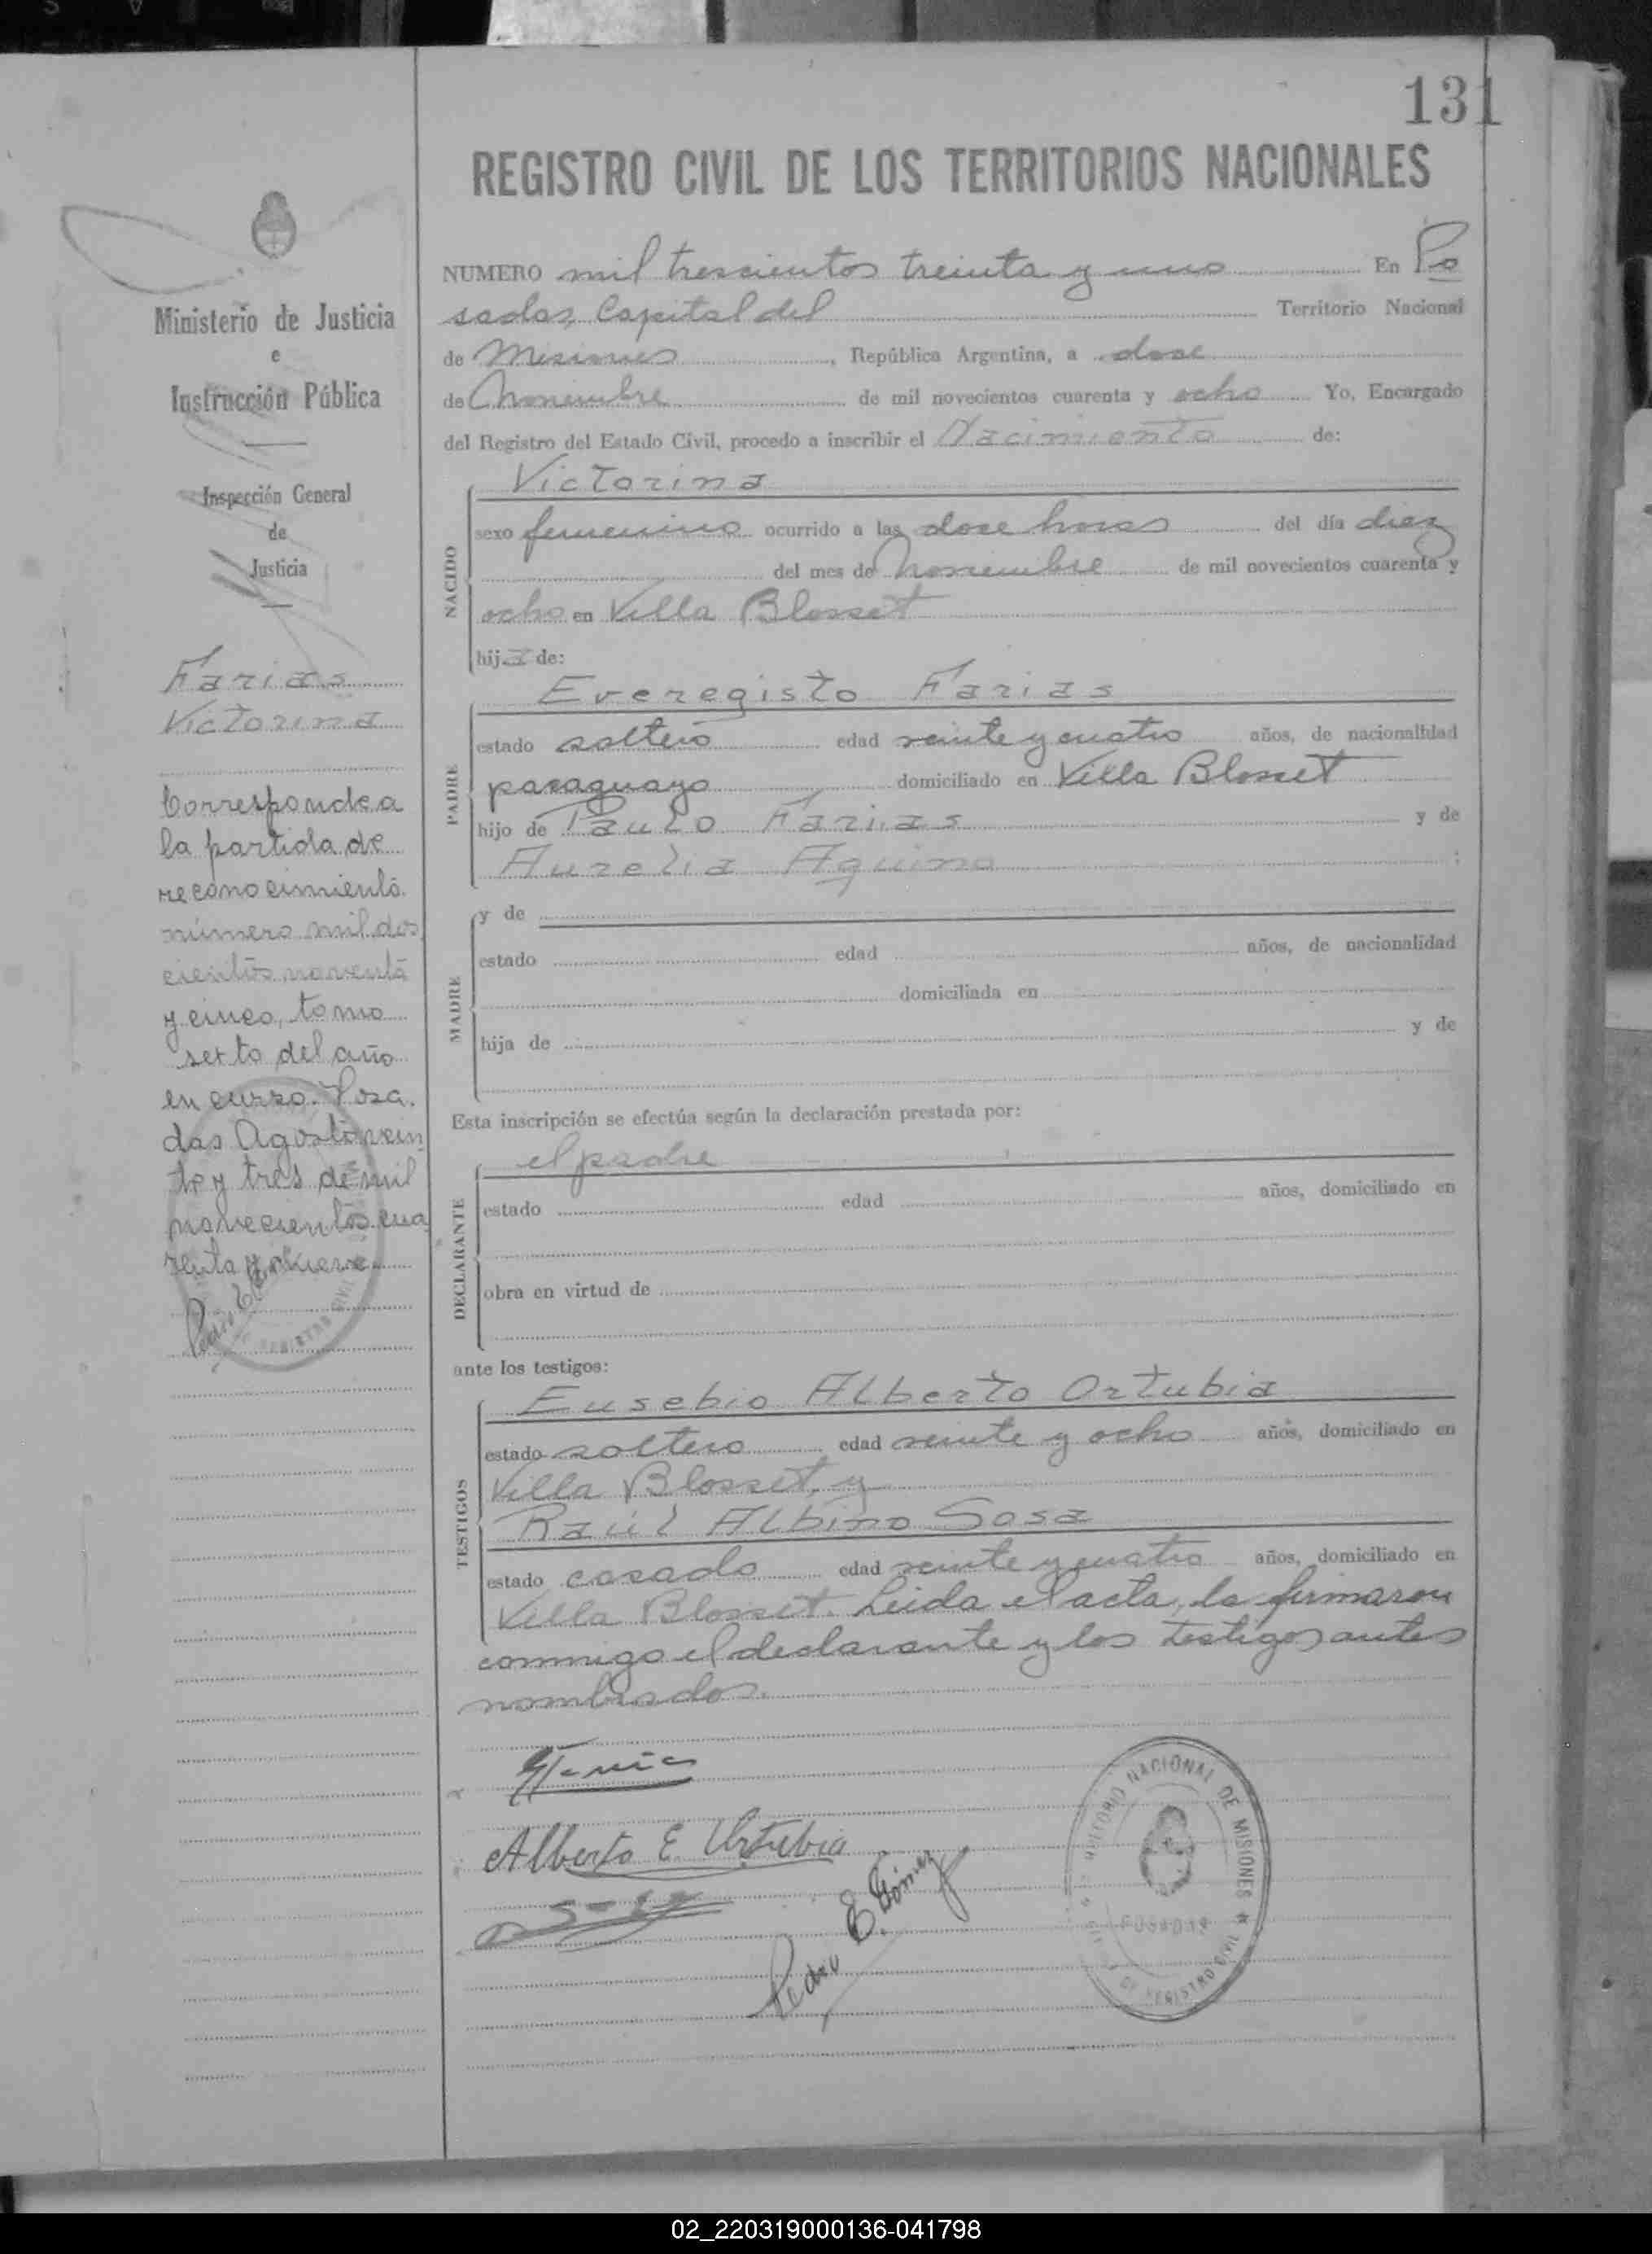 131
REGISTRO CIVIL DE LOS TERRITORIOS NACIONALES
NUMERO mil trescientos treinta y uno En Po
sadas, Capital del Territorio Nacional
de Misiones, República Argentina, a doce
de Noviembre de mil novecientos cuarenta y ocho Yo, Encargado
del Registro del Estado Civil, procedo a inscribir el Nacimiento de:
NACIDO
Victorina
sexo femenino ocurrido a las doce horas del día diez
del mes de Noviembre de mil novecientos cuarenta y
ocho en Villa Blosset
hija de:
PADRE
Everegisto Farias
estado soltero edad veinte y cuatro años, de nacionalidad
paraguayo domiciliado en Villa Blosset
hijo de Paulo Farias y de
Aurelia Aquino ;
MADRE
y de
estado edad años, de nacionalidad
domiciliada en
hija de y de
Esta inscripción se efectúa según la declaración prestada por:
DECLARANTE
el padre
estado edad años, domiciliado en
obra en virtud de
ante los testigos:
TESTIGOS
Eusebio Alberto Ortubia
estado soltero edad veinte y ocho años, domiciliado en
Villa Blosset, y
Raúl Albino Sosa
estado casado edad veinte y cuatro años, domiciliado en
Villa Blosset. Leida el acta, la firmaron
conmigo el declarante y los testigos antes
nombrados.
Alberto E. Urtubia
Pedro E. Gómez
NACIONAL DE MISIONES
POSADAS
REGISTRO CIVIL
Ministerio de Justicia
e
Instrucción Pública
Inspección General
de
Justicia
Farias
Victorina
Corresponde a
la partida de
reconocimiento
número mil dos
cientos noventa
y cinco, tomo
sexto del año
en curso. Posa.
das Agosto vein
te y tres de mil
novecientos cua
renta y nueve.
REGISTRO CIVIL
02_220319000136-041798